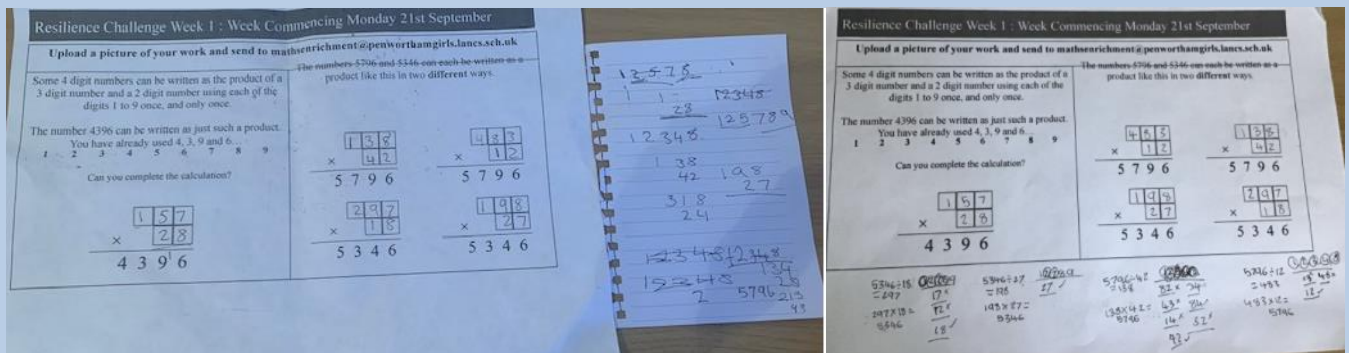 Resilience Challenge Week 1 : Week Commencing Monday 21st September
Upload a picture of your work and send to mathsenrichment@penworthamgirls.lancs.sch.uk
Some 4 digit numbers can be written as the product of a
3 digit number and a 2 digit number using each of the
digits 1 to 9 once, and only once.
The number 4396 can be written as just such a product.
You have already used 4, 3, 9 and 6...
1 2 3 4 5 6 7 8 9
Can you complete the calculation?
1 5 7
× 2 8
4 3 9 6
The numbers 5796 and 5346 can each be written as a
product like this in two different ways.
1 3 8
× 4 2
5 7 9 6
4 8 3
× 1 2
5 7 9 6
2 9 7
× 1 8
5 3 4 6
1 9 8
× 2 7
5 3 4 6
1 2 5 7 8
12348
28
125789
1 2 3 4 8
1 38
42
198
27
318
24
12348
12348
134
28
12348
2
5796
213
43
Resilience Challenge Week 1 : Week Commencing Monday 21st September
Upload a picture of your work and send to mathsenrichment@penworthamgirls.lancs.sch.uk
Some 4 digit numbers can be written as the product of a
3 digit number and a 2 digit number using each of the
digits 1 to 9 once, and only once.
The number 4396 can be written as just such a product.
You have already used 4, 3, 9 and 6...
1 2 3 4 5 6 7 8 9
Can you complete the calculation?
1 5 7
× 2 8
4 3 9 6
The numbers 5796 and 5346 can each be written as a
product like this in two different ways.
4 8 3
× 1 2
5 7 9 6
1 3 8
× 4 2
5 7 9 6
1 9 8
× 2 7
5 3 4 6
2 9 7
× 1 8
5 3 4 6
5346÷18
=297
297×18=
5346
17×
12×
18✓
5346÷27
=198
198×27=
5346
27✓
5796÷42
=138
138×42=
5796
32× 24×
43× 34×
14× 32×
42✓
5796÷12
=483
483×12=
5796
12✓